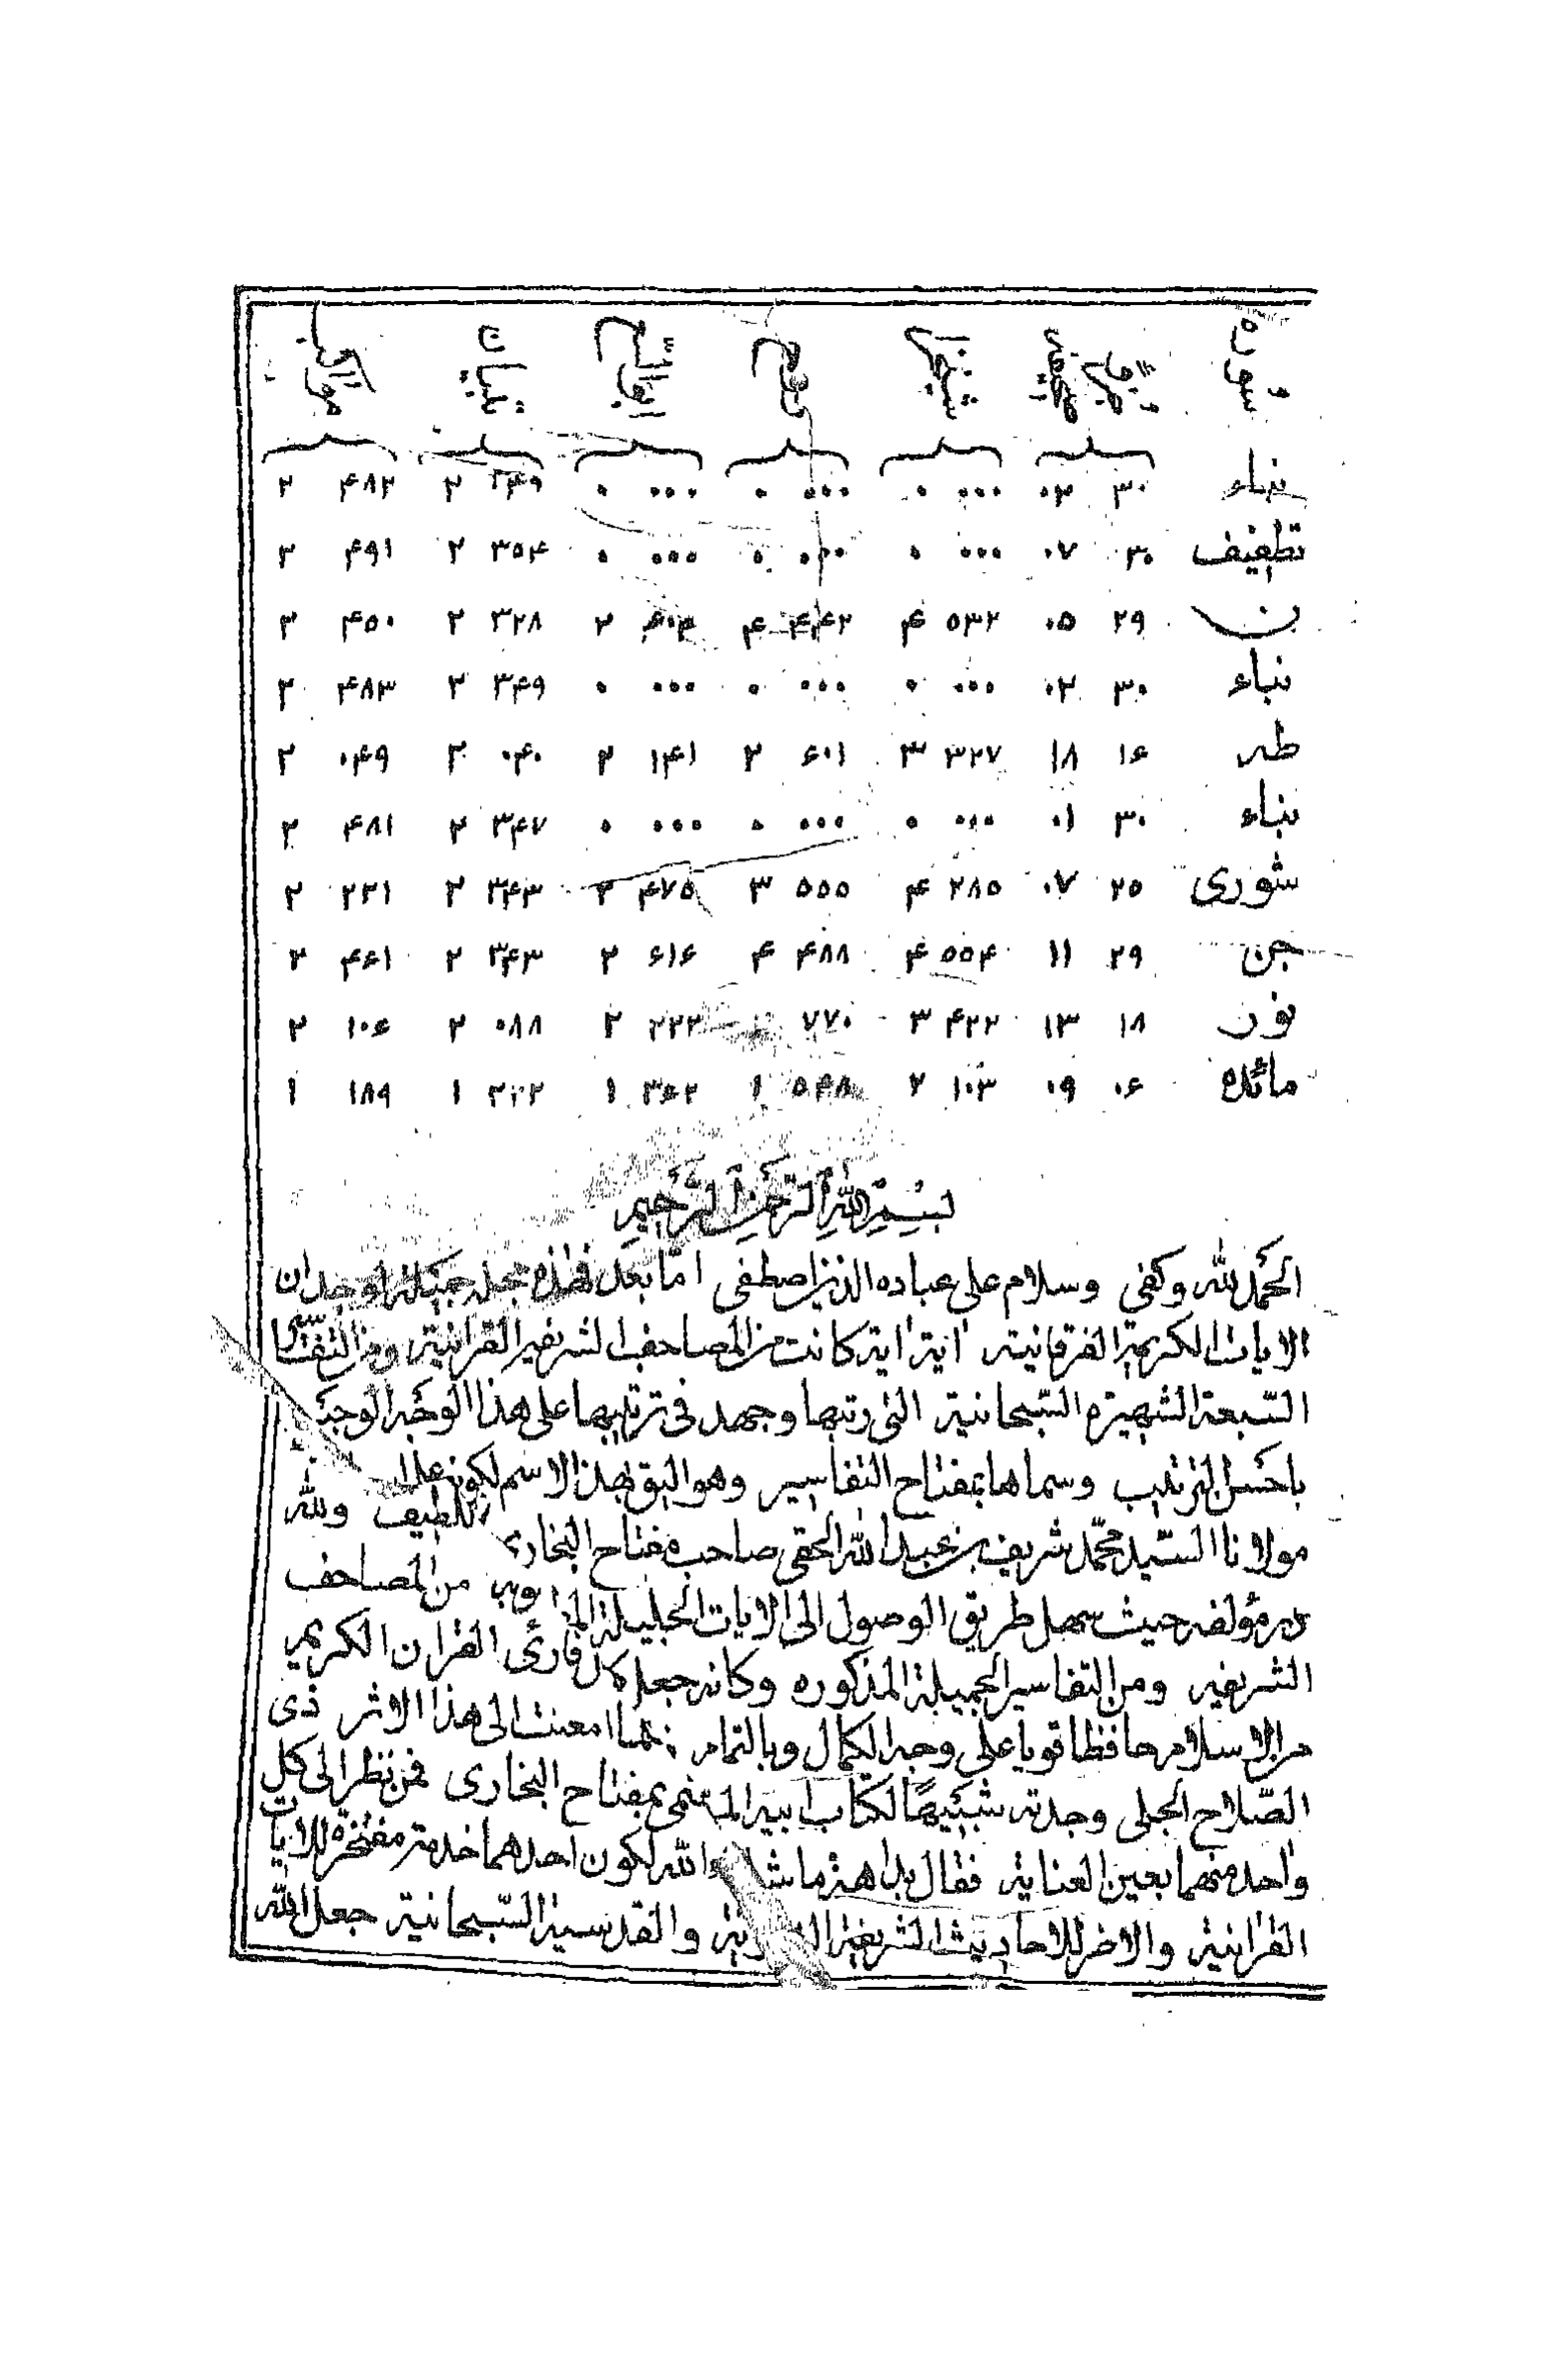 سوره
نباء ٣٠ ٠٢ ٠٠٠ ٠ ٠٠٠ ٠ ٠٠٠ ٠ ٣۴٩ ٢ ۴٨٢ ٢
تطفيف ٣٠ ٠٧ ٠٠٠ ٠ ٠٠٠ ٠ ٠٠٠ ٠ ٣٥۴ ٢ ۴٩١ ٢
ن ٢٩ ٠٥ ٥٣٢ ۴ ۴۴٢ ۴ ٢ ٣٢٨ ٢ ۴٥٠ ٢
نباء ٣٠ ٠٢ ٠٠٠ ٠ ٠٠٠ ٠ ٠٠٠ ٠ ٣۴٩ ٢ ۴٨٣ ٢
طه ١۶ ١٨ ٣٢٧ ٣ ۶٠١ ٢ ١۴١ ٢ ٠۴٠ ٢ ٠۴٩ ٢
نباء ٣٠ ٠١ ٠٠٠ ٠ ٠٠٠ ٠ ٠٠٠ ٠ ٣۴٧ ٢ ۴٨١ ٢
شورى ٢٥ ٠٧ ٢٨٥ ۴ ٥٥٥ ٣ ۴٧٥ ٢ ٢۴٣ ٢ ٢٣١ ٢
جن ٢٩ ١١ ٥٥۴ ۴ ۴٨٨ ۴ ۶١۶ ٢ ٣۴٣ ٢ ۴۶١ ٢
نور ١٨ ١٣ ۴٢٢ ٣ ٧٧٠ ٢٢٣ ٢ ٠٨٨ ٢ ١٠۶ ٢
مائده ٠۶ ٠٩ ١٠٣ ٢ ٥۴٨ ١ ٣۶٢ ١ ٢٢٢ ١ ١٨٩ ١
بِسْمِ اللّٰهِ الرَّحْمٰنِ الرَّحِيْمِ
الحَمد لله وكفى وسلام على عباده الذين اصطفى اما بعد فهذه مجلة جميلة
الايات الكريمة الفرقانية اٰية اٰية كانت من المصاحف الشريفة القراٰنية ومن التفاسير
السّبعة الشهيرة السّبحانية التى رتبها وجهد فى ترتيبها على هذا الوَجْه الوجيَه
باحسَن الترتيب وسماها بمفتاح التفاسير وهو اليق بهذا الاسم لكونه
مولانا السّيد محمّد شريف بن عبد الله الحقى صاحب مفتاح البخارى اللطيف ولله
در مؤلفه حيث سهل طريق الوصول الى الايات الجليلة من المصاحف
الشريفه ومن التفاسير الجميلة المذكوره وكانه جعل كل قارئ القران الكريم
من الاسلام حافظا قويا على وجه الكمال وبالتمام فلما امعنت الى هذا الاثر ذى
الصّلاح الجلى وجدته شَبيْهًا لكتاب ابيه المسمى بمفتاح البخارى فمن نظر الى كل
واحد منهما بعين العناية فقال بداهة ما شاء الله لكون احدهما خدمة مفتخرة للايات
القراٰنية والاخر للاحاديث الشريفة النبوية والقدسية السّبحانية جعل الله